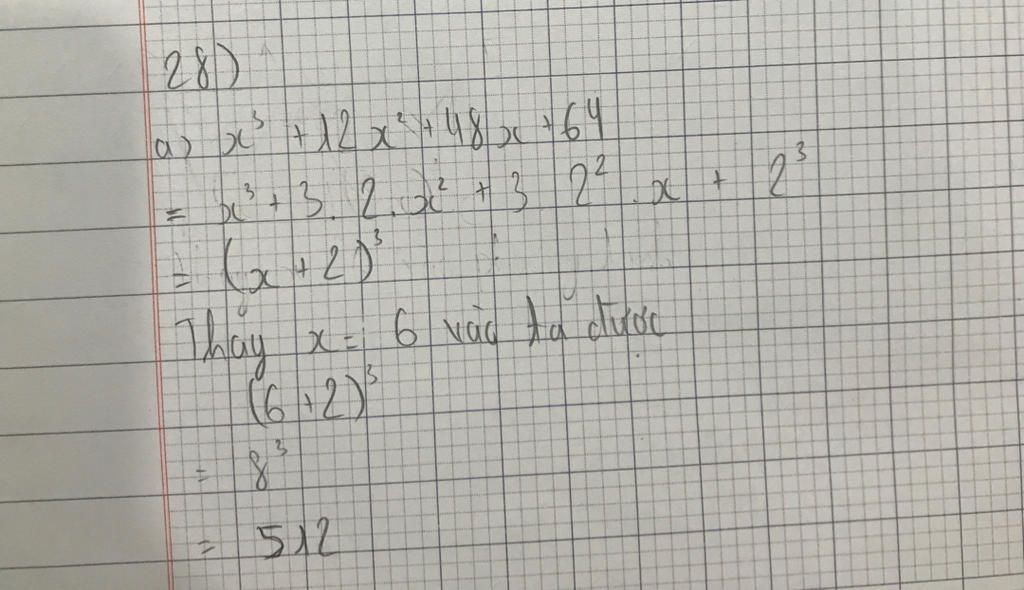 28)
a) x³ + 12x² + 48x + 64
= x³ + 3.2.x² + 3 2².x + 2³
= (x + 2)³
Thay x = 6 vào ta được
(6 + 2)³
= 8³
= 512